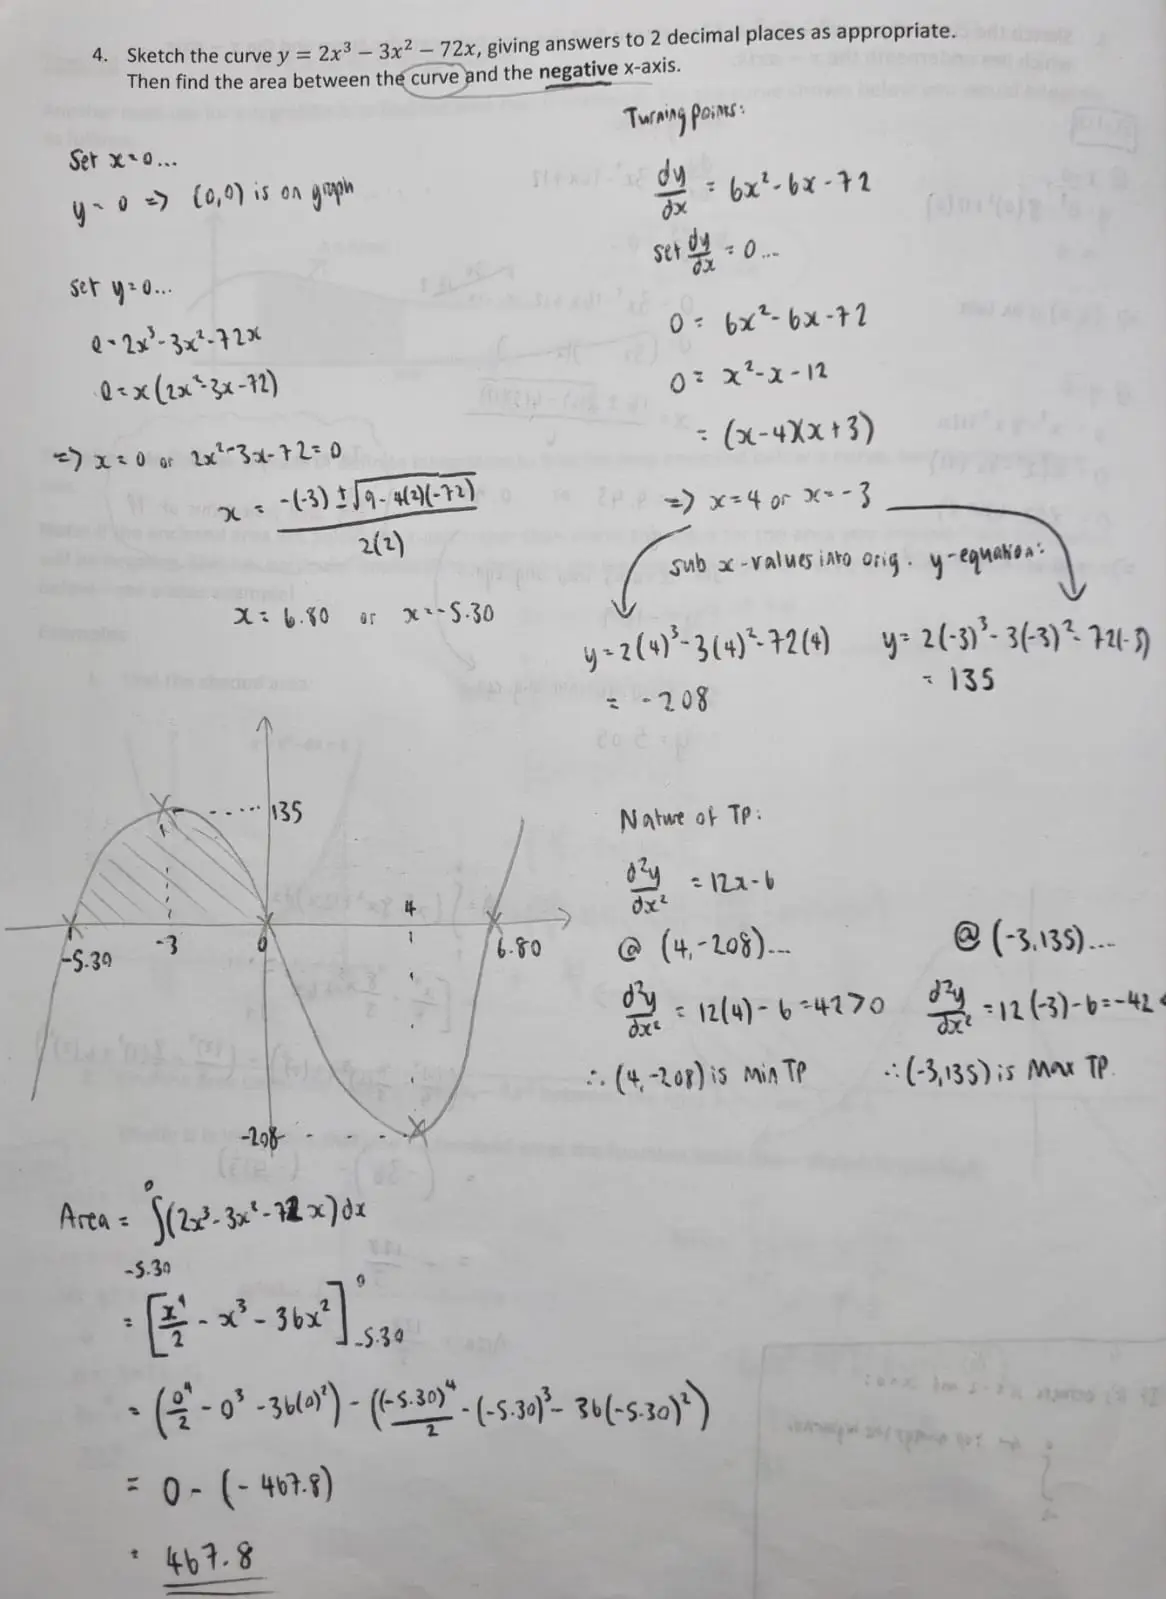 4. Sketch the curve y = 2x³ − 3x² − 72x, giving answers to 2 decimal places as appropriate.
Then find the area between the curve and the negative x-axis.
Set x=0...
y = 0 => (0,0) is on graph
set y=0...
0 = 2x³-3x²-72x
0 = x(2x²-3x-72)
=> x=0 or 2x²-3x-72=0
x = (-(-3) ± √(9-4(2)(-72))) / 2(2)
x = 6.80 or x=-5.30
Turning points:
dy/dx = 6x²-6x-72
set dy/dx = 0...
0 = 6x²-6x-72
0 = x²-x-12
= (x-4)(x+3)
=> x=4 or x=-3
sub x-values into orig. y-equation:
y=2(4)³-3(4)²-72(4)
= -208
y= 2(-3)³-3(-3)²-72(-3)
= 135
135
-5.30 -3 0 4 6.80
-208
Nature of TP:
d²y/dx² = 12x-6
@ (4,-208)....
d²y/dx² = 12(4)-6=42>0
∴ (4,-208) is min TP
@ (-3,135)....
d²y/dx² = 12(-3)-6=-42<
∴ (-3,135) is Max TP.
Area = ∫₋₅.₃₀⁰ (2x³-3x²-72x)dx
= [x⁴/2 - x³ - 36x²]₋₅.₃₀⁰
= (0⁴/2 - 0³ - 36(0)²) - ((-5.30)⁴/2 - (-5.30)³ - 36(-5.30)²)
= 0 - (-467.8)
= 467.8